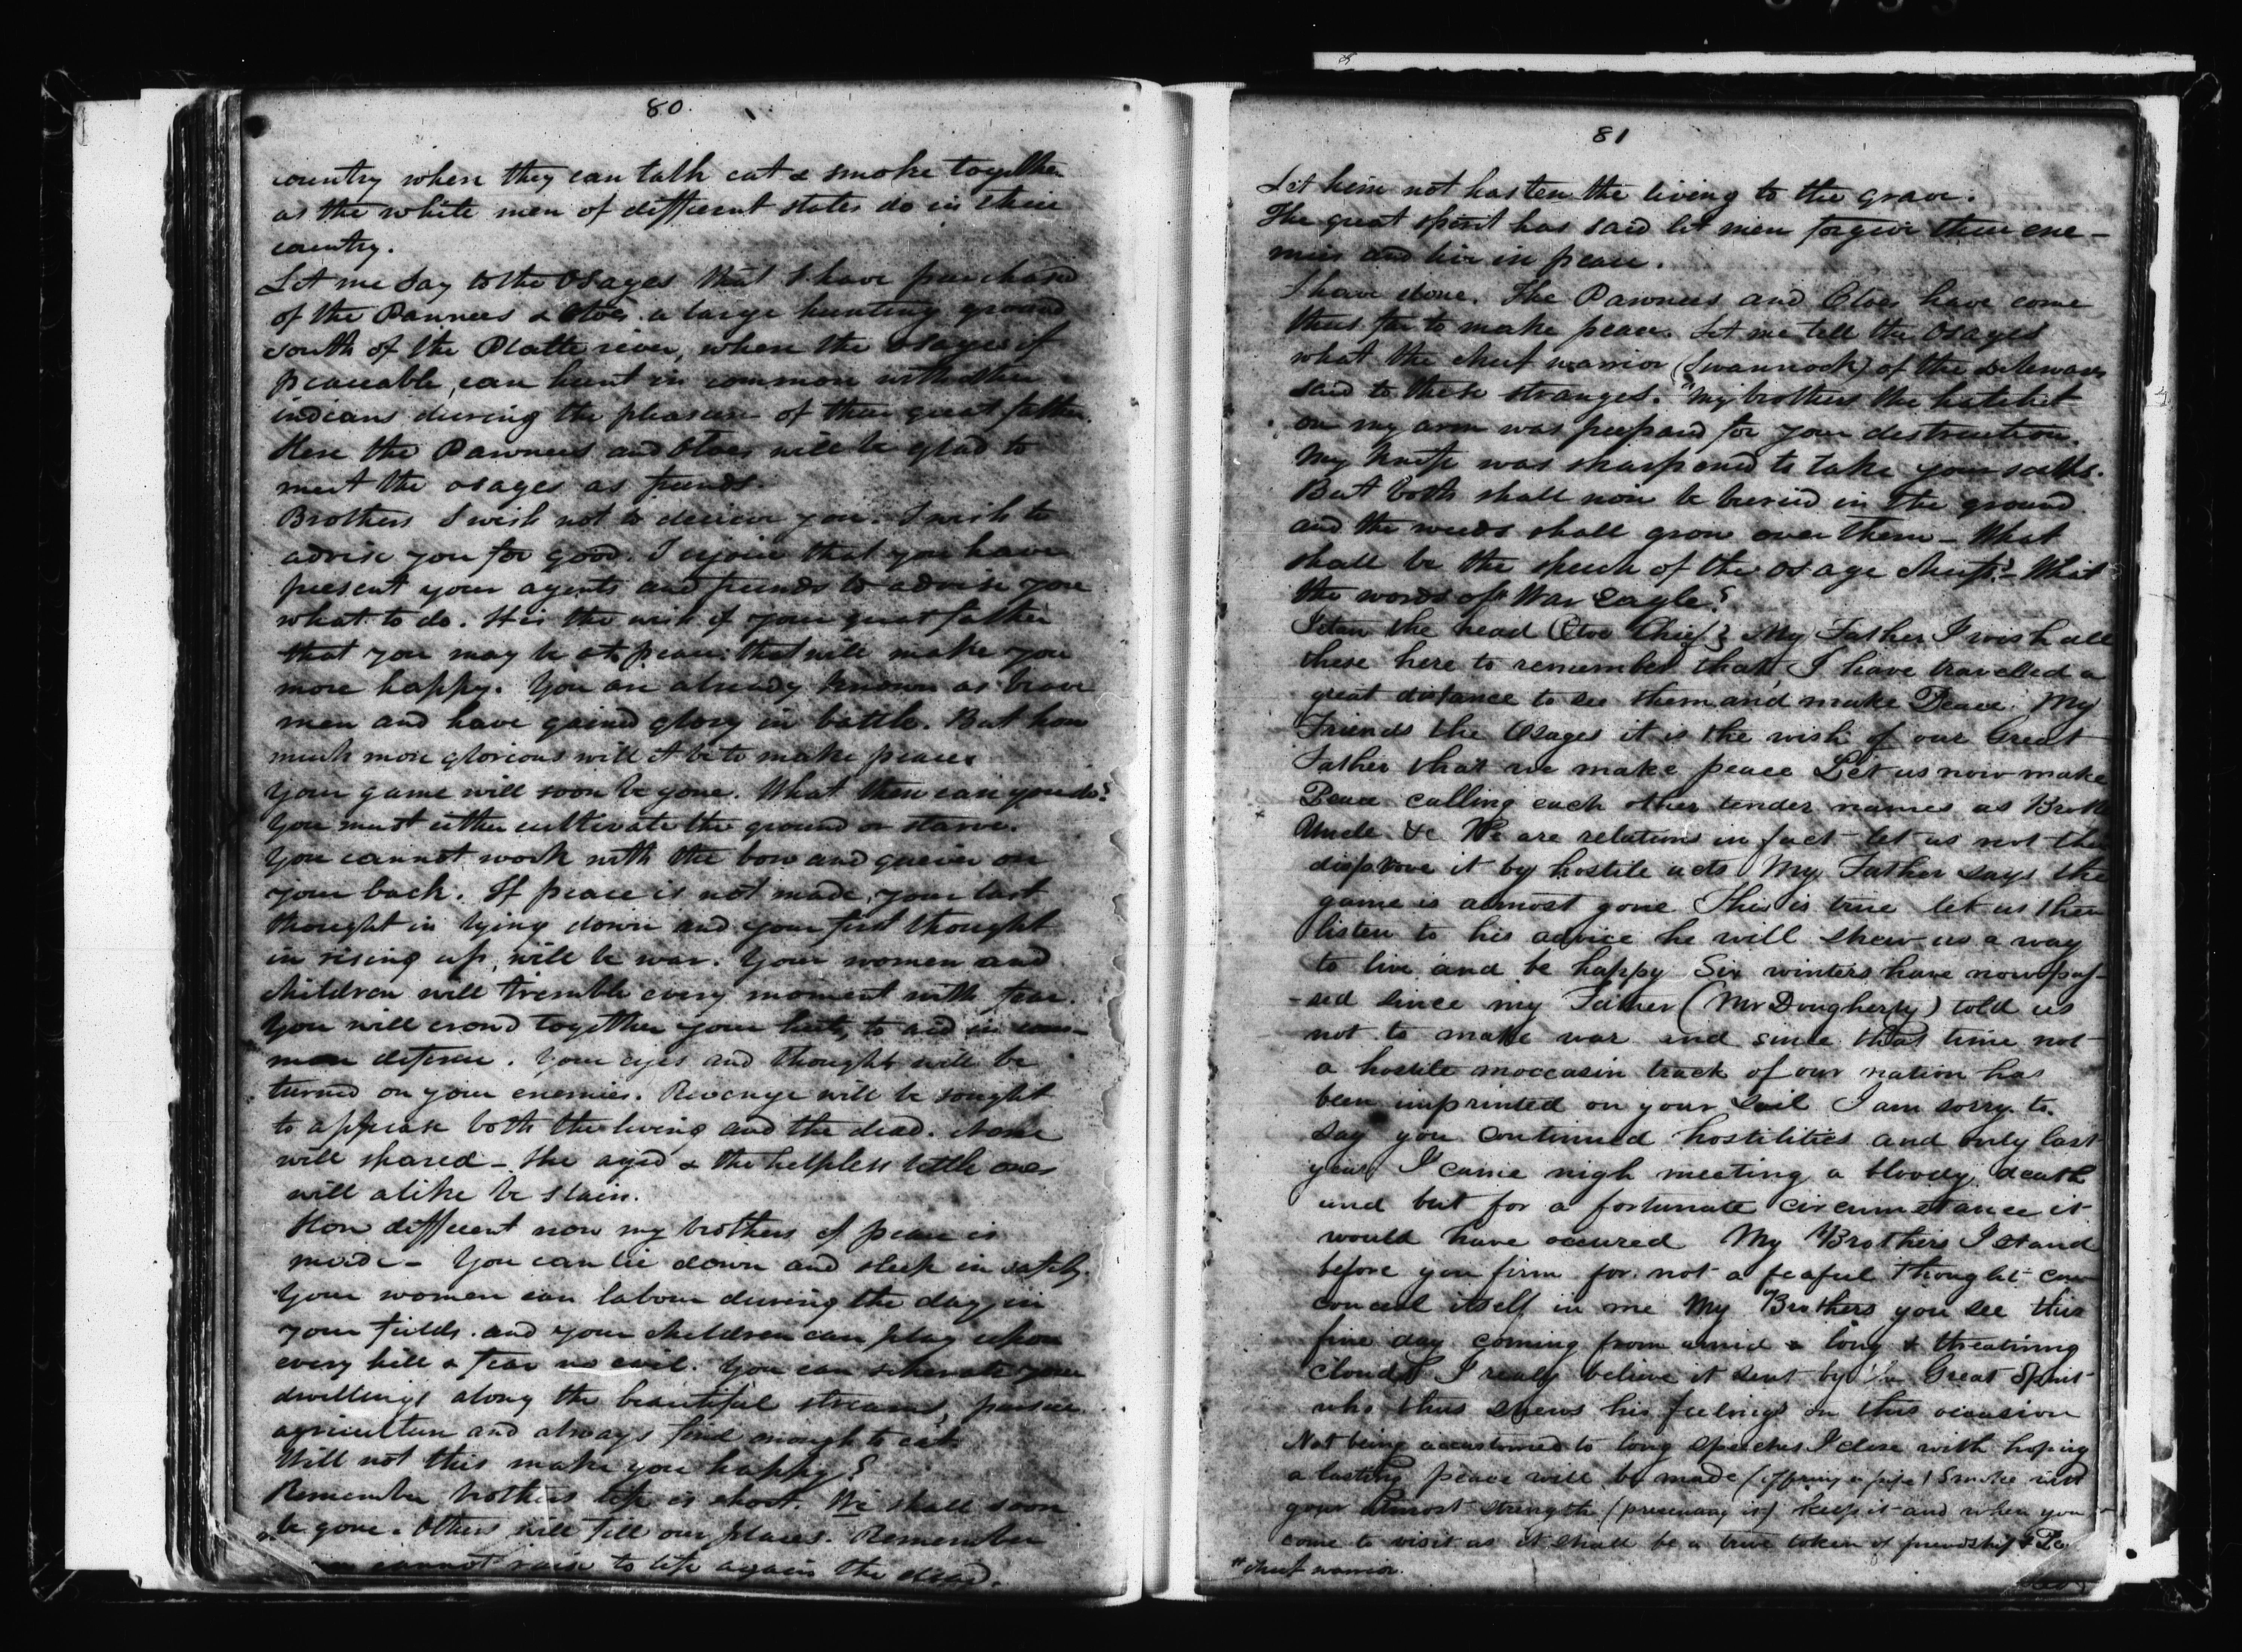 80.
country where they can talk eat & smoke together
as the white men of different states do in their
country.
Let me say to the Osages that I have purchased
of the Pawnees & Otoes a large hunting ground
south of the Platte river, where the Osages if
peaceable, can hunt in common with other
indians during the pleasure of their great father.
Here the Pawnees and Otoes will be glad to
meet the osages as friends.
Brothers I wish not to deceive you. I wish to
advise you for good. I rejoice that you have
present your agents and friends to advise you
what to do. It is the wish of your great father
that you may be at peace: that will make you
more happy. You are already known as brave
men and have gained glory in battle. But how
much more glorious will it be to make peace.
Your game will soon be gone. What then can you do?
You must either cultivate the ground or starve.
You cannot work with the bow and quiver on
your back. If peace is not made, your last
thought in lying down and your first thought
in rising up, will be war. Your women and
children will tremble every moment with fear.
You will crowd together your huts, to aid in com-
mon defense. Your eyes and thoughts will be
turned on your enemies. Revenge will be sought
to appease both the living and the dead. None
will spared - the aged & the helpless little ones
will alike be slain.
How different now my brothers if peace is
made - You can lie down and sleep in safety.
Your women can labour during the day, in
your fields. and your children can play upon
every hill & fear no evil. You can your
dwellings along the beautiful streams, pursue
agriculture and always find enough to eat.
Will not this make you happy?
Remember brothers life is short. We shall soon
be gone. Others will fill our places. Remember
cannot raise to life again the dead.
81
Let him not hasten the living to the grave.
The great spirit has said let men forgive their ene-
mies and live in peace.
I have done. The Pawnees and Otoes have come
thus far to make peace. Let me tell the Osages
what the chief warrior (Swannock) of the Delawares
said to these stranges. "My brothers the hatchet
on my arm was prepared for your destruction.
My knife was sharpened to take your scalps.
But both shall now be buried in the ground
and the weeds shall grow over them - What
shall be the speech of the Osage chiefs? - What
the words of * War Eagle?
Ietan the head (Otoe Chief) My Father I wish all
these here to remember that, I have travelled a
great distance to see them and make Peace. My
Friends the Osages it is the wish of our Great
Father that we make peace Let us now make
Peace calling each other tender names as Broth
Uncle &c We are relations in fact let us not the
disprove it by hostile acts My Father says the
game is almost gone This is true let us then
listen to his advice he will shew us a way
to live and be happy Six winters have now pas-
-sed since my Father (Mr Dougherty) told us
not to make war and since that time not
a hostile moccasin track of our nation has
been imprinted on your soil I am sorry to
say you continued hostilities and only last
year I came nigh meeting a bloody death
and but for a fortunate circumstance it
would have occured My Brothers I stand
before you firm for not a feaful thought can
conceal itself in me My Brothers you see this
fine day coming from amid a long & threatning
cloud I realy believe it sent by the Great Spirit
who thus shews his feelings on this occasion
Not being accustomed to long speeches I close with hoping
a lasting peace will be made (offering a pipe) Smoke with
your utmost strength (presenting it) keep it and when you
come to visit us it shall be a true token of friendship & Pe
* chief warrior.